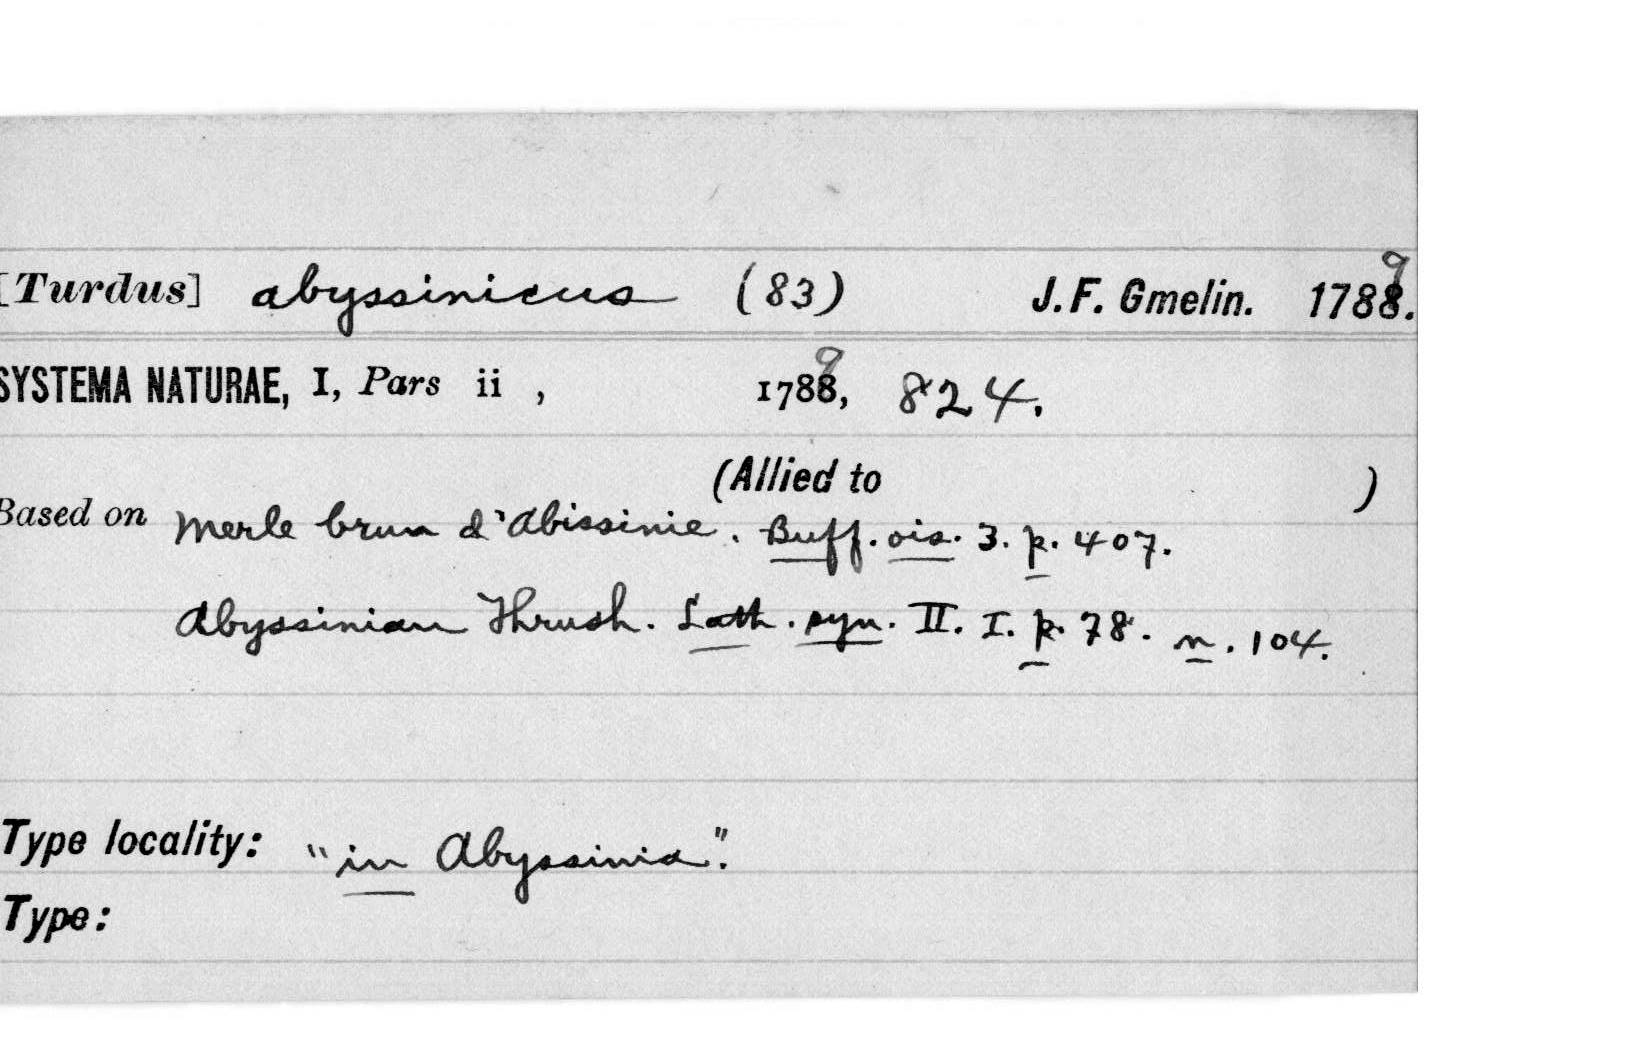 [Turdus] abyssinicus (83) J. F. Gmelin. 1788. 9
SYSTEMA NATURAE, I, Pars ii , 1788, 9 824.
(Allied to )
Based on Merle brun d'Abissinie. Buff. ois. 3. p. 407.
Abyssinian Thrush. Lath. syn. II. I. p. 78. n. 104.
Type locality: "in Abyssinia".
Type: